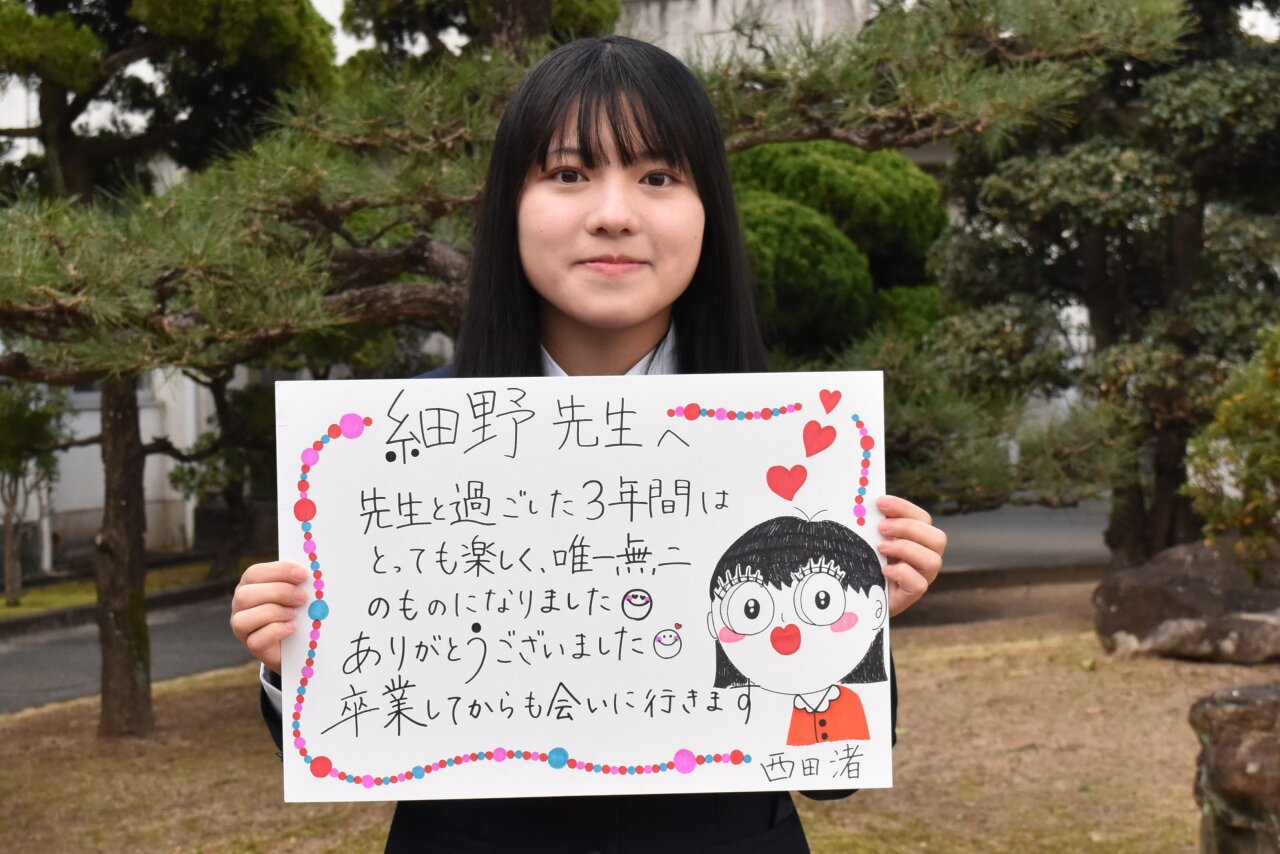 細野先生へ
先生と過ごした3年間は
とっても楽しく、唯一無二
のものになりました
ありがとうございました
卒業してからも会いに行きます
西田渚